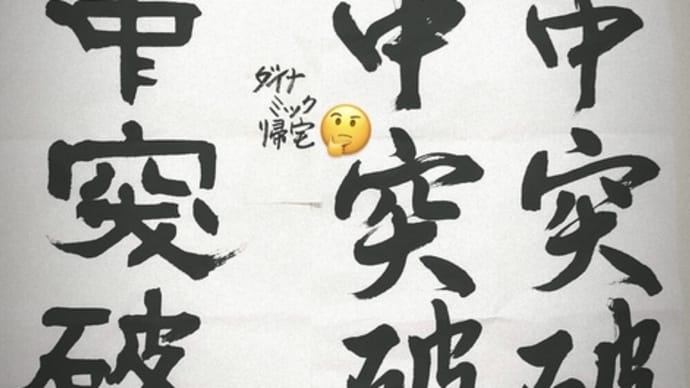 中突破
中突破
ダイナ
ミック
帰宅🤔
中突破